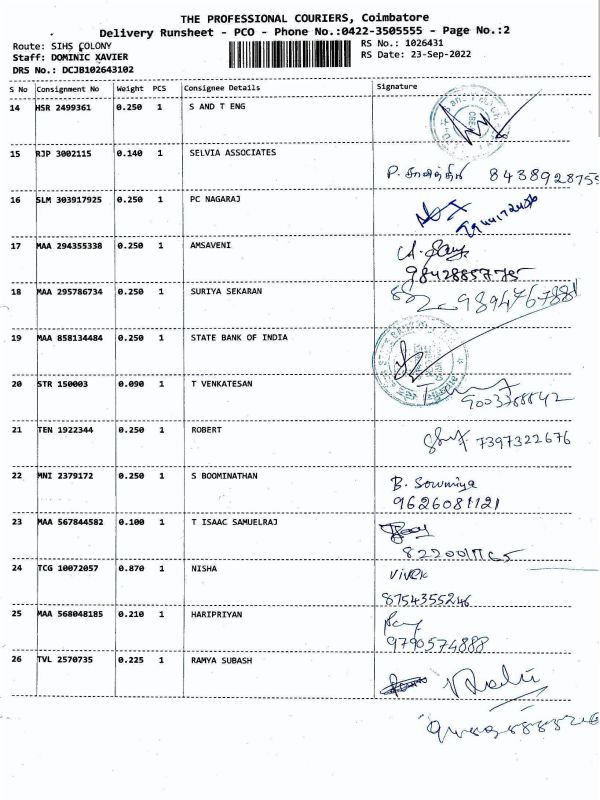 THE PROFESSIONAL COURIERS, Coimbatore
Delivery Runsheet - PCO - Phone No.:0422-3505555 - Page No.:2
Route: SIHS COLONY RS No.: 1026431
Staff: DOMINIC XAVIER RS Date: 23-Sep-2022
DRS No.: DCJB102643102
S No Consignment No Weight PCS Consignee Details Signature
14 HSR 2499361 0.250 1 S AND T ENG
15 RJP 3002115 0.140 1 SELVIA ASSOCIATES
P. 8438928755
16 SLM 303917925 0.250 1 PC NAGARAJ
17 MAA 294355338 0.250 1 AMSAVENI
9842885775
18 MAA 295786734 0.250 1 SURIYA SEKARAN
9894767881
19 MAA 858134484 0.250 1 STATE BANK OF INDIA
20 STR 150003 0.090 1 T VENKATESAN
21 TEN 1922344 0.250 1 ROBERT
7397322676
22 MNI 2379172 0.250 1 S BOOMINATHAN
B. Sowmiya
9626081121
23 MAA 567844582 0.100 1 T ISAAC SAMUELRAJ
24 TCG 10072057 0.870 1 NISHA
Vivek
8754355246
25 MAA 568048185 0.210 1 HARIPRIYAN
9790574888
26 TVL 2570735 0.225 1 RAMYA SUBASH